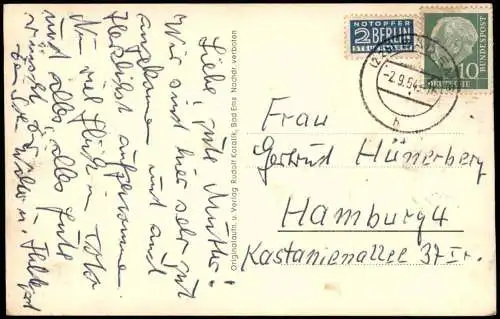 Liebe, gute Mutter!
Wir sind hier sehr gut
angekommen und auch
herzlichst aufgenommen.
Nun viel Glück im Toto
und alles, alles Gute
wünscht Dir
Originalaufn. u. Verlag Rudolf Karalik, Bad Ems Nachdr. verboten
NOTOPFER
2 BERLIN
STEUERMARKE
-2.9.54
h
10
DEUTSCHE
BUNDESPOST
Frau
Gertrud Hünerberg
Hamburg 4
Kastanienallee 37 Ir.